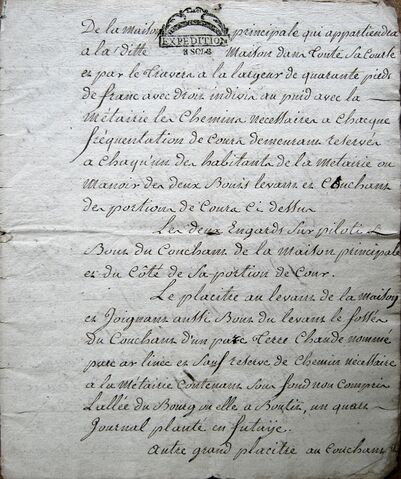 De la maison principale qui appartiendra
EXPEDITION
8 SOLS
a la ditte maison dans toute sa Courte
et par le travers a la largeur de quarante pieds
de franc avec droit indivis au puid avec la
Métairie les Chemins necessaire a chacque
fréquentation de Cours demeurans reservés
a chaqu'un des habitants de la metairie ou
manoir des deux Bouts levant et Couchant
des portions de Cours Ci dessus
Les deux Engards sur pilotis
Bout du Couchant de la maison principale
et du Côté de sa portion de Cour.
Le placitre au levant de la maison
et Joignant aussi Bout du levant le fossés
du Couchant d'un parc terre Chaude nommé
parc ar linec et sauf reserve de Chemin necessaire
a la Métairie Contenant sous fond non Compris
L'allée du Bourg ou elle a Boutis, un quart
Journal planté en futaye.
autre grand placitre au Couchant